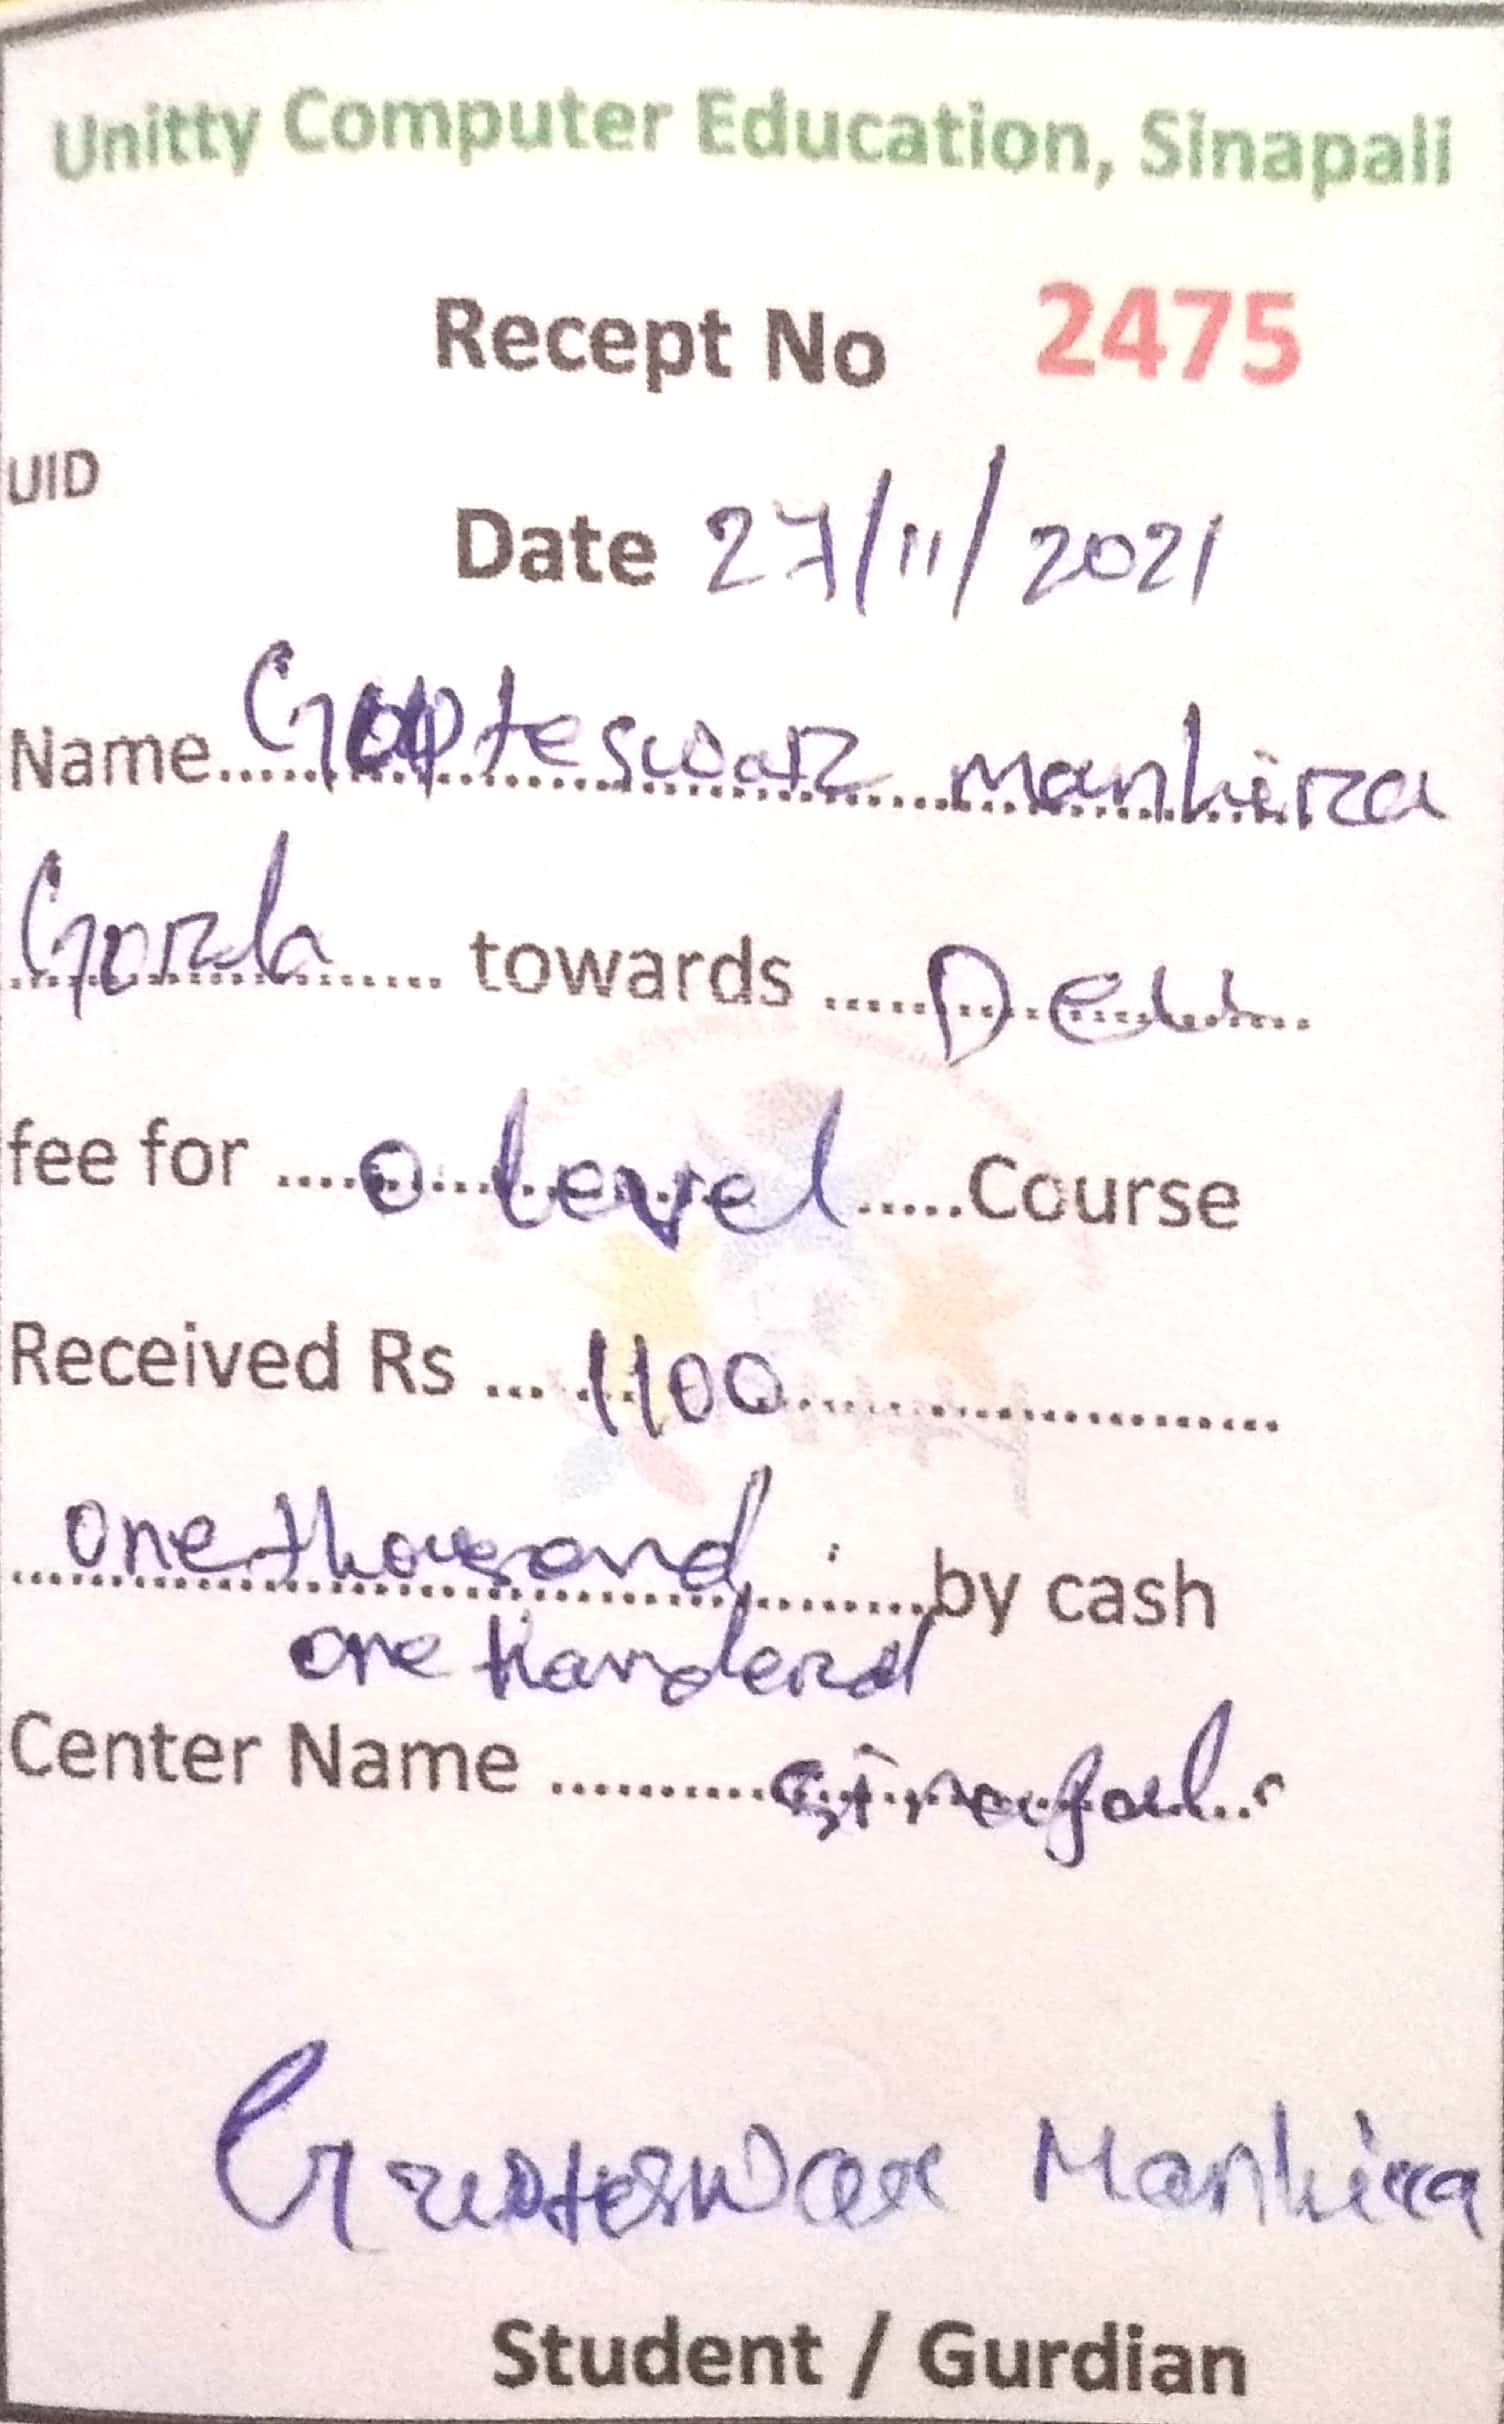 Unitty Computer Education, Sinapali
Recept No 2475
UID
Date 27/11/2021
Name Gupteswar mankira
Gorla towards
fee for o level Course
Received Rs 1100
one thousand by cash
one handerd
Center Name Sinapali
Gupteswar Mankira
Student / Gurdian